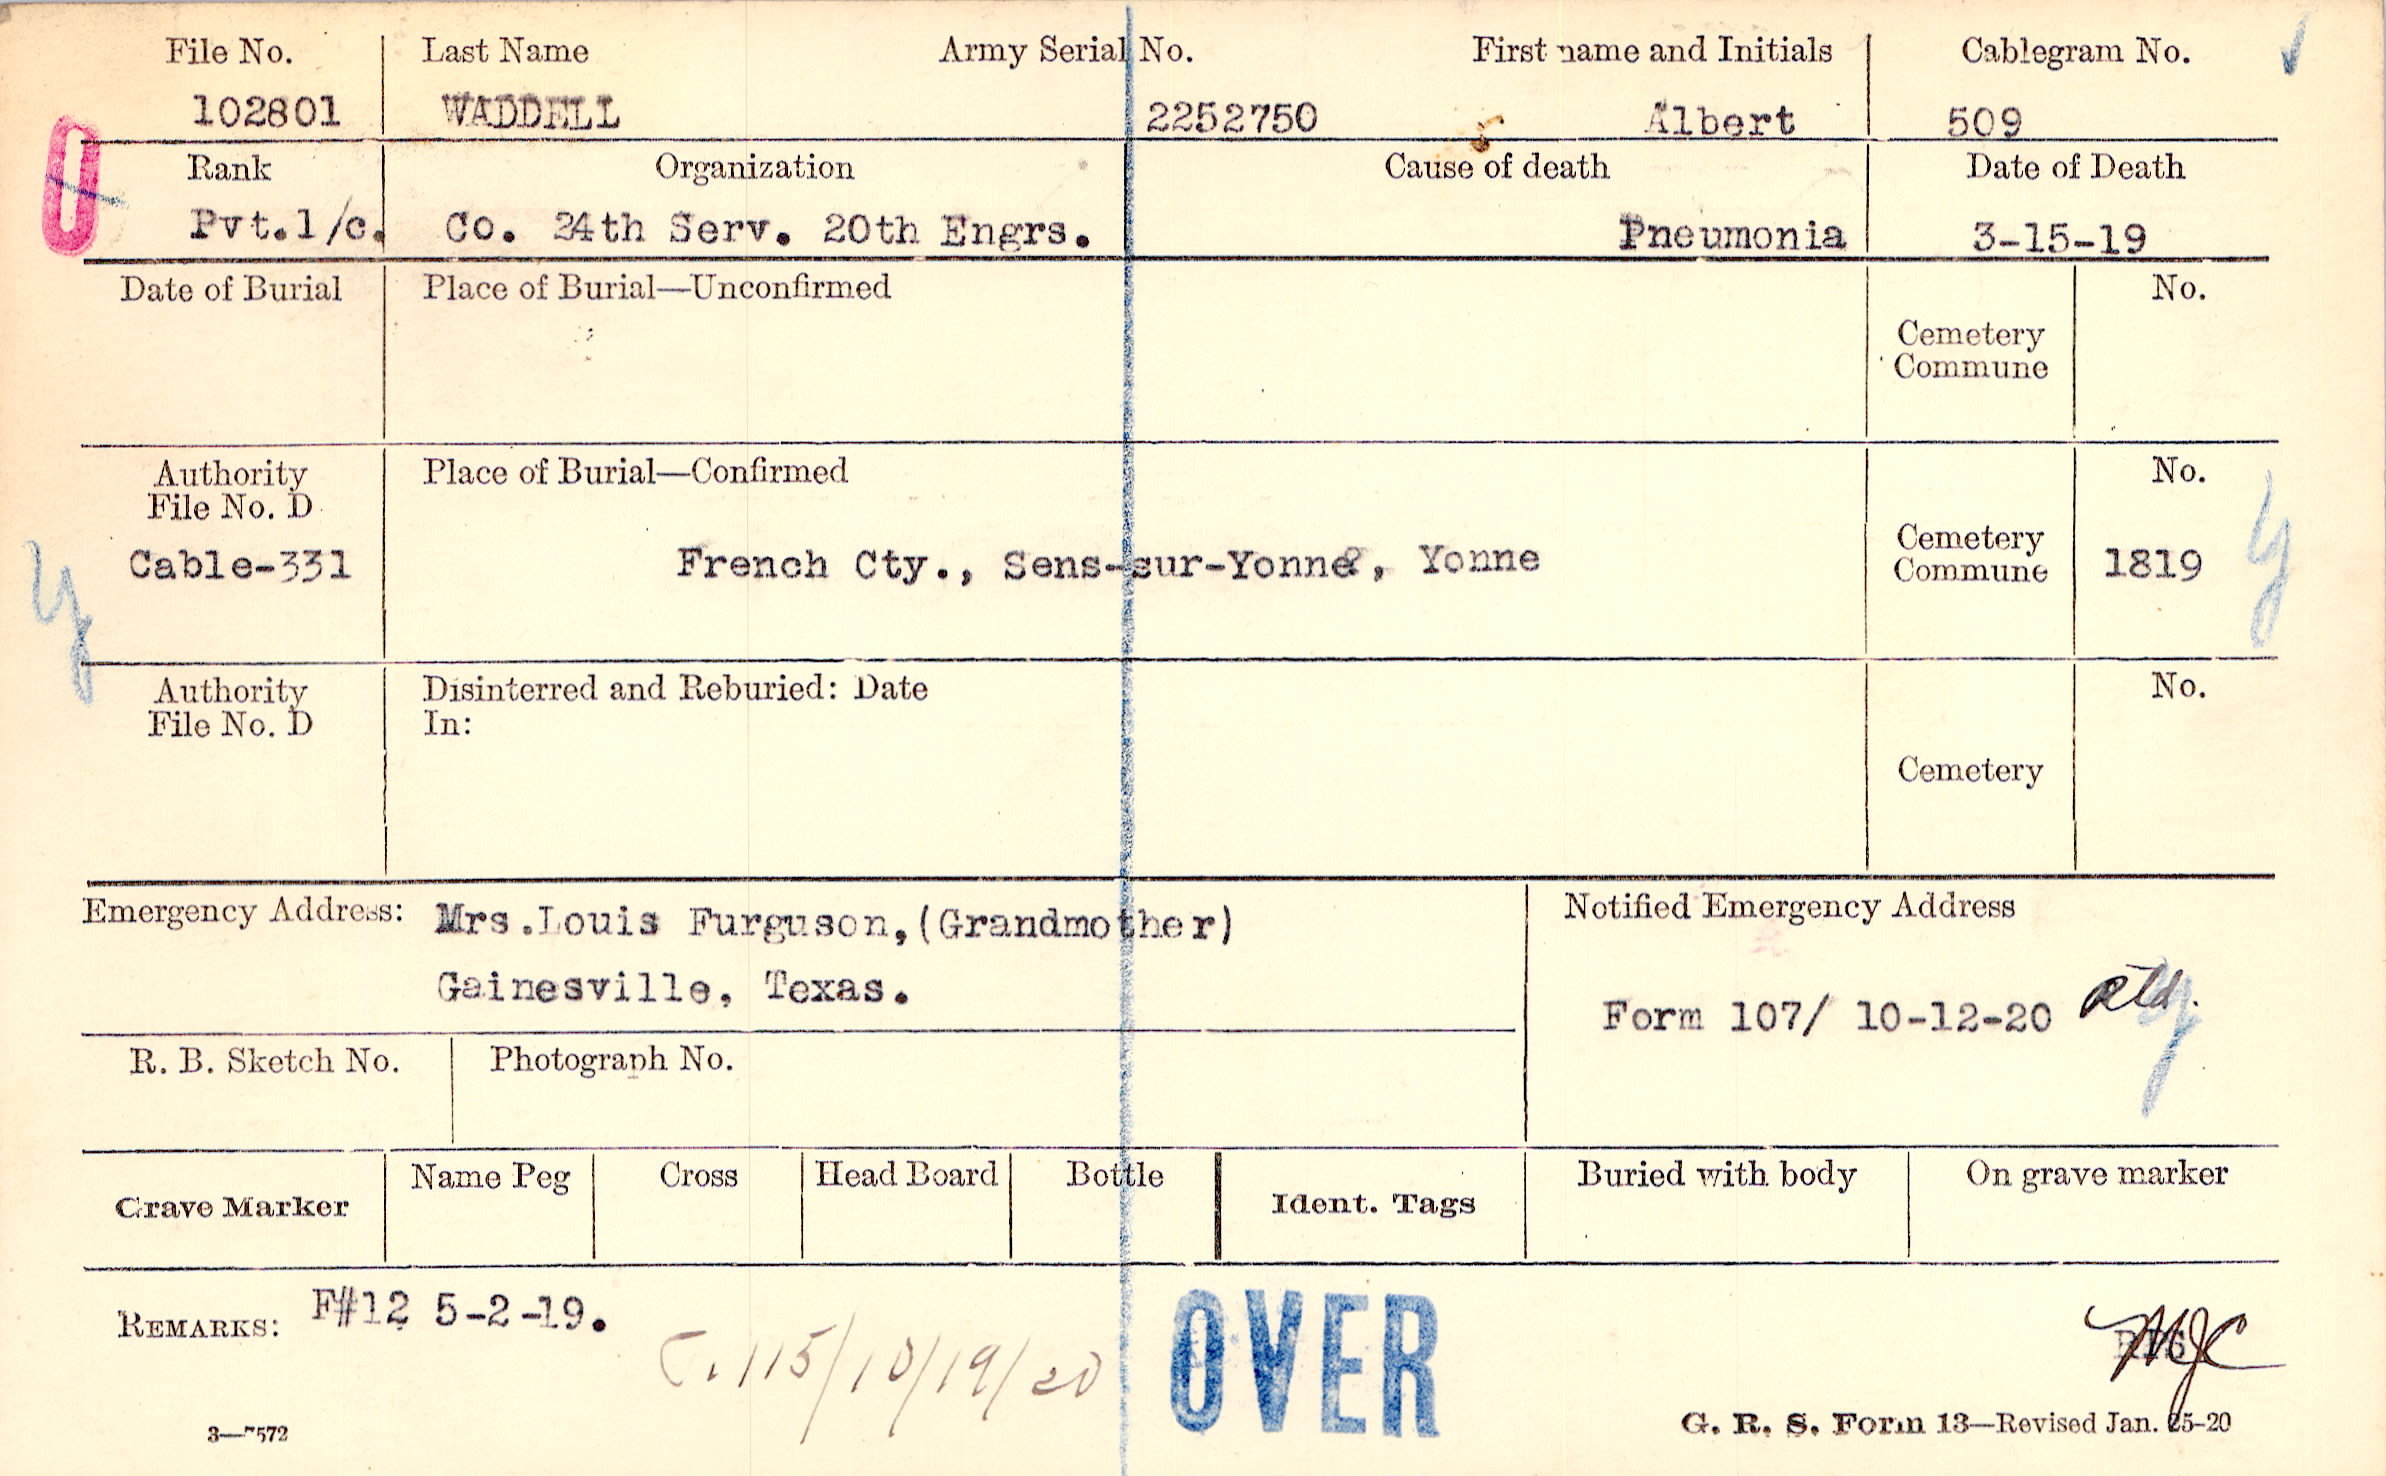 File No. Last Name Army Serial No. First name and Initials Cablegram No.
102801 WADDELL 2252750 Albert 509
Rank Organization Cause of death Date of Death
Pvt.1/c. Co. 24th Serv. 20th Engrs. Pneumonia 3-15-19
Date of Burial Place of Burial—Unconfirmed No.
Cemetery
Commune
Authority Place of Burial—Confirmed No.
File No. D
Cable-331 French Cty., Sens-sur-Yonne, Yonne Cemetery Commune 1819
y y
Authority Disinterred and Reburied: Date No.
File No. D In:
Cemetery
Emergency Address: Mrs.Louis Furguson,(Grandmother) Notified Emergency Address
Gainesville, Texas. Form 107/ 10-12-20
y
R. B. Sketch No. Photograph No.
Grave Marker Name Peg Cross Head Board Bottle Ident. Tags Buried with body On grave marker
REMARKS: F#12 5-2-19.
115/10/19/20 OVER MJC
3—7572 G. R. S. Form 13—Revised Jan. 25-20